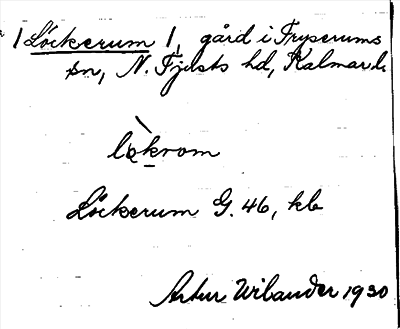 Löckerum 1, gård i Fryserums
sn, N. Tjusts hd, Kalmar l.
Löckerum G. 46, kb
Artur Wilander 1930